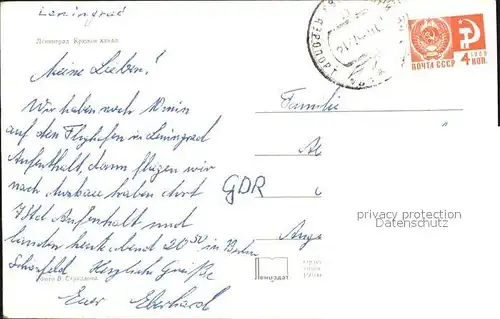 Leningrad
Ленинград. Крюков канал
АЭРОПОРТ
ПОЧТА СССР
1966
4 КОП.
Meine Lieben!
Wir haben noch 10 min
auf den Flughafen in Leningrad
Aufenthalt, dann fliegen wir
nach haben dort
7 Std Aufenthalt und
landen heute abend 20⁵⁰ in Berlin
Schönefeld Herzliche Grüße
Euer Eberhard
Familie
GDR
privacy protection
Datenschutz
Фото В. Стукалова
Лениздат